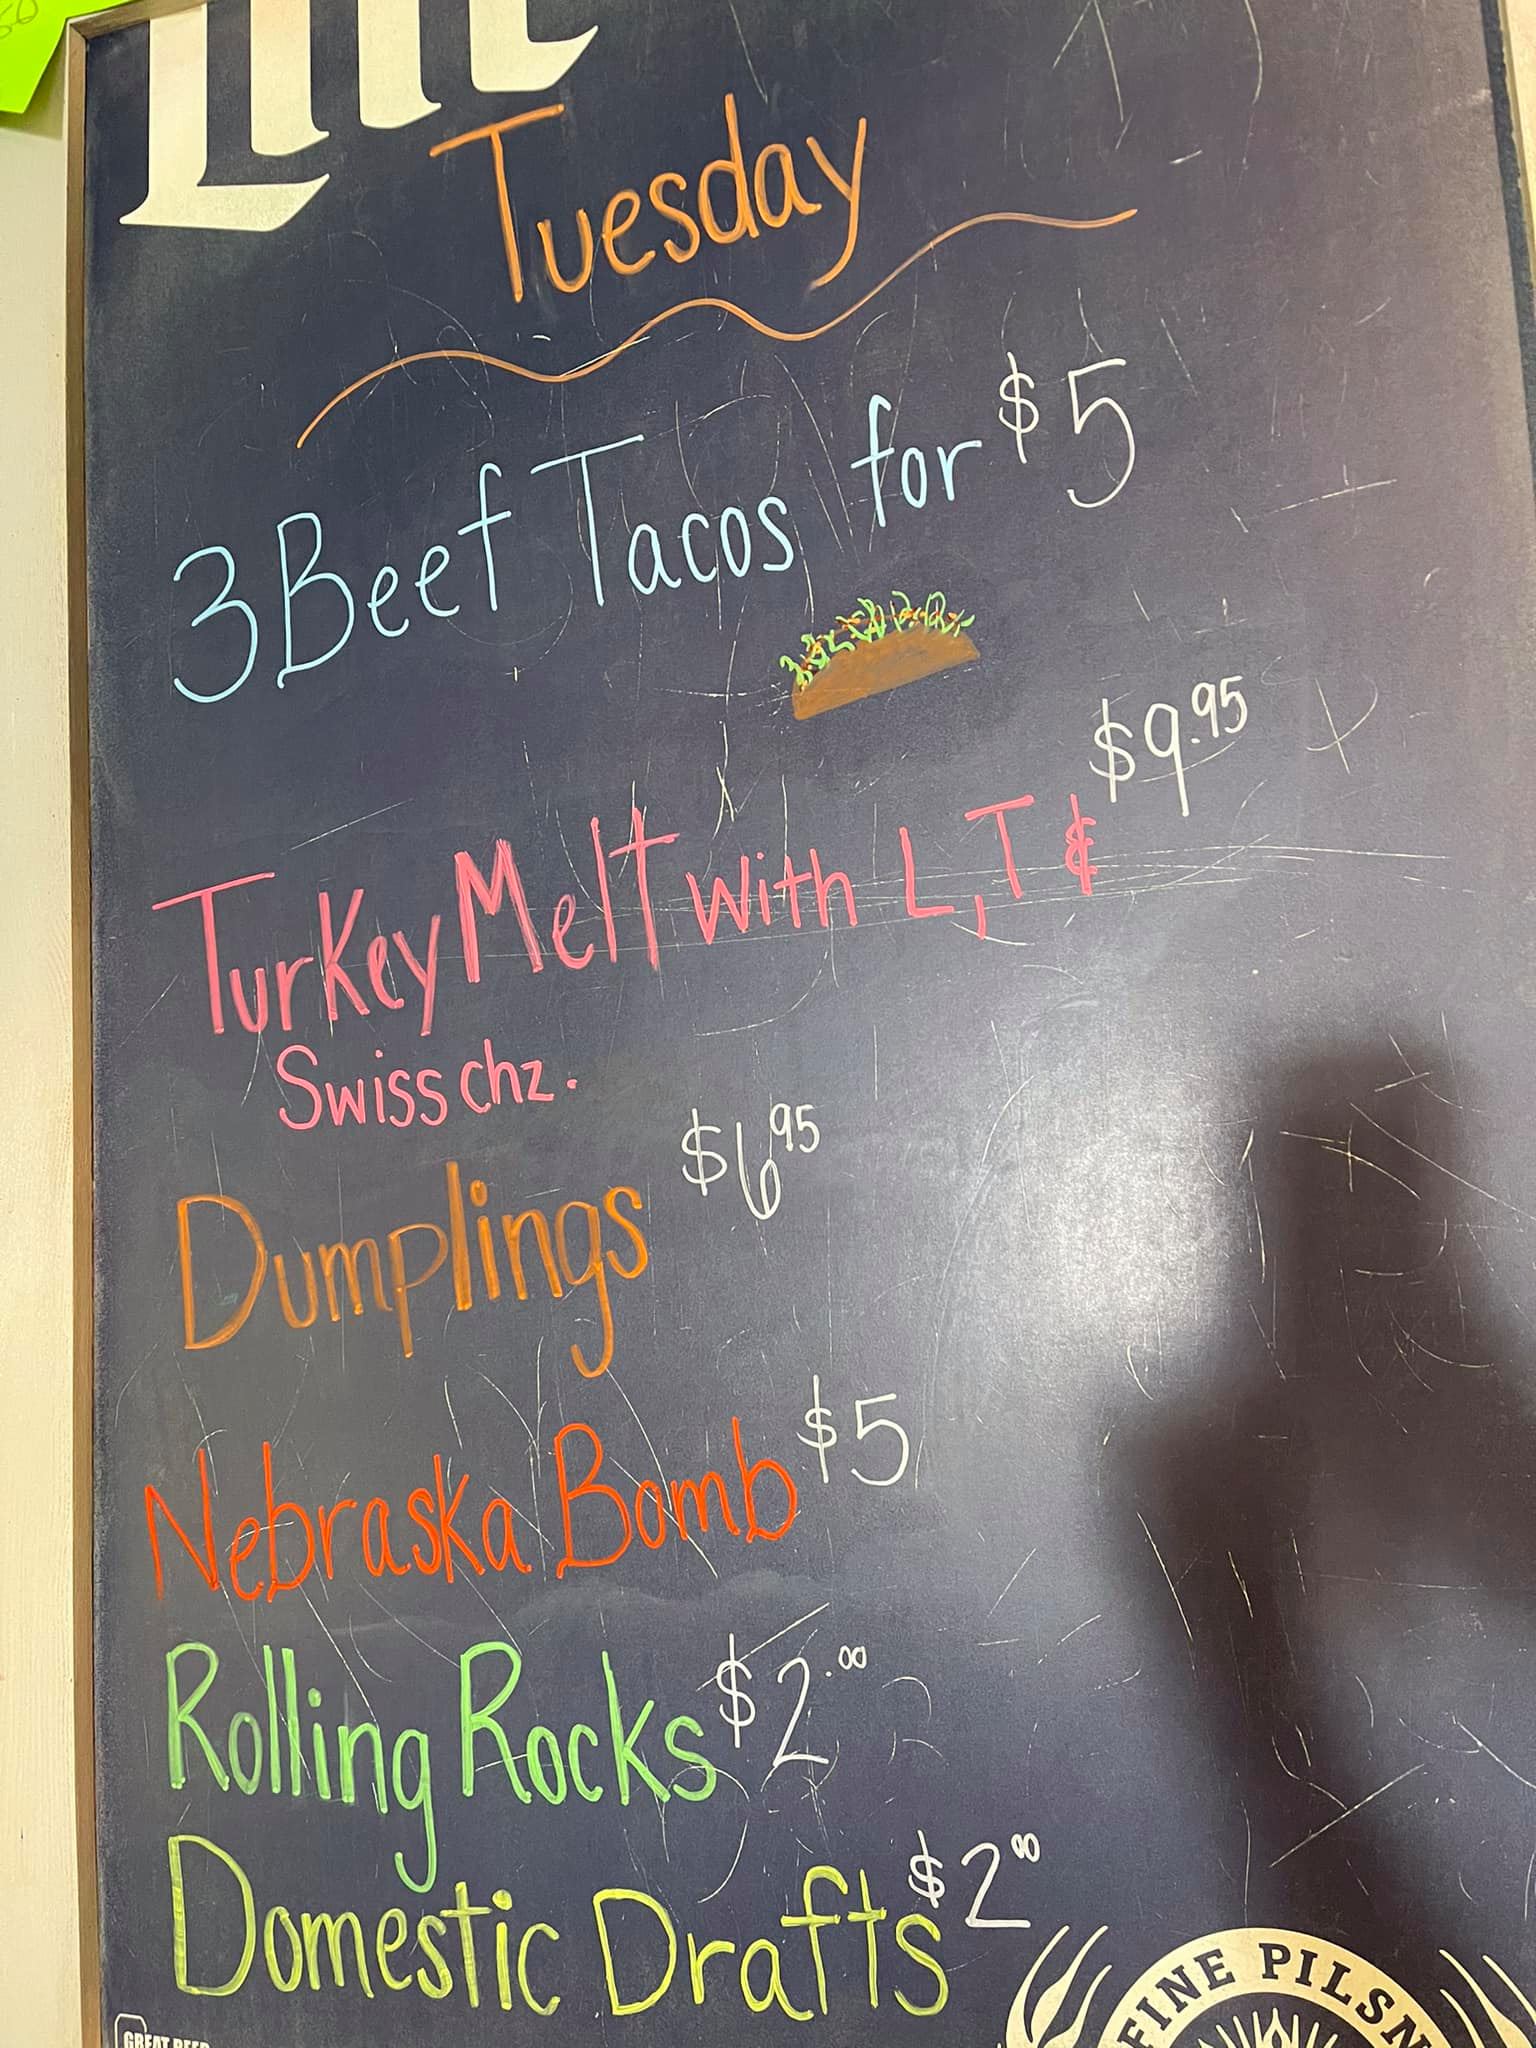 Lite
Tuesday
3 Beef Tacos for $5
$9.95
Turkey Melt with L, T &
Swiss chz.
Dumplings $6.95
Nebraska Bomb $5
Rolling Rocks $2.00
Domestic Drafts $2.00
FINE PILSN
GREAT BEER